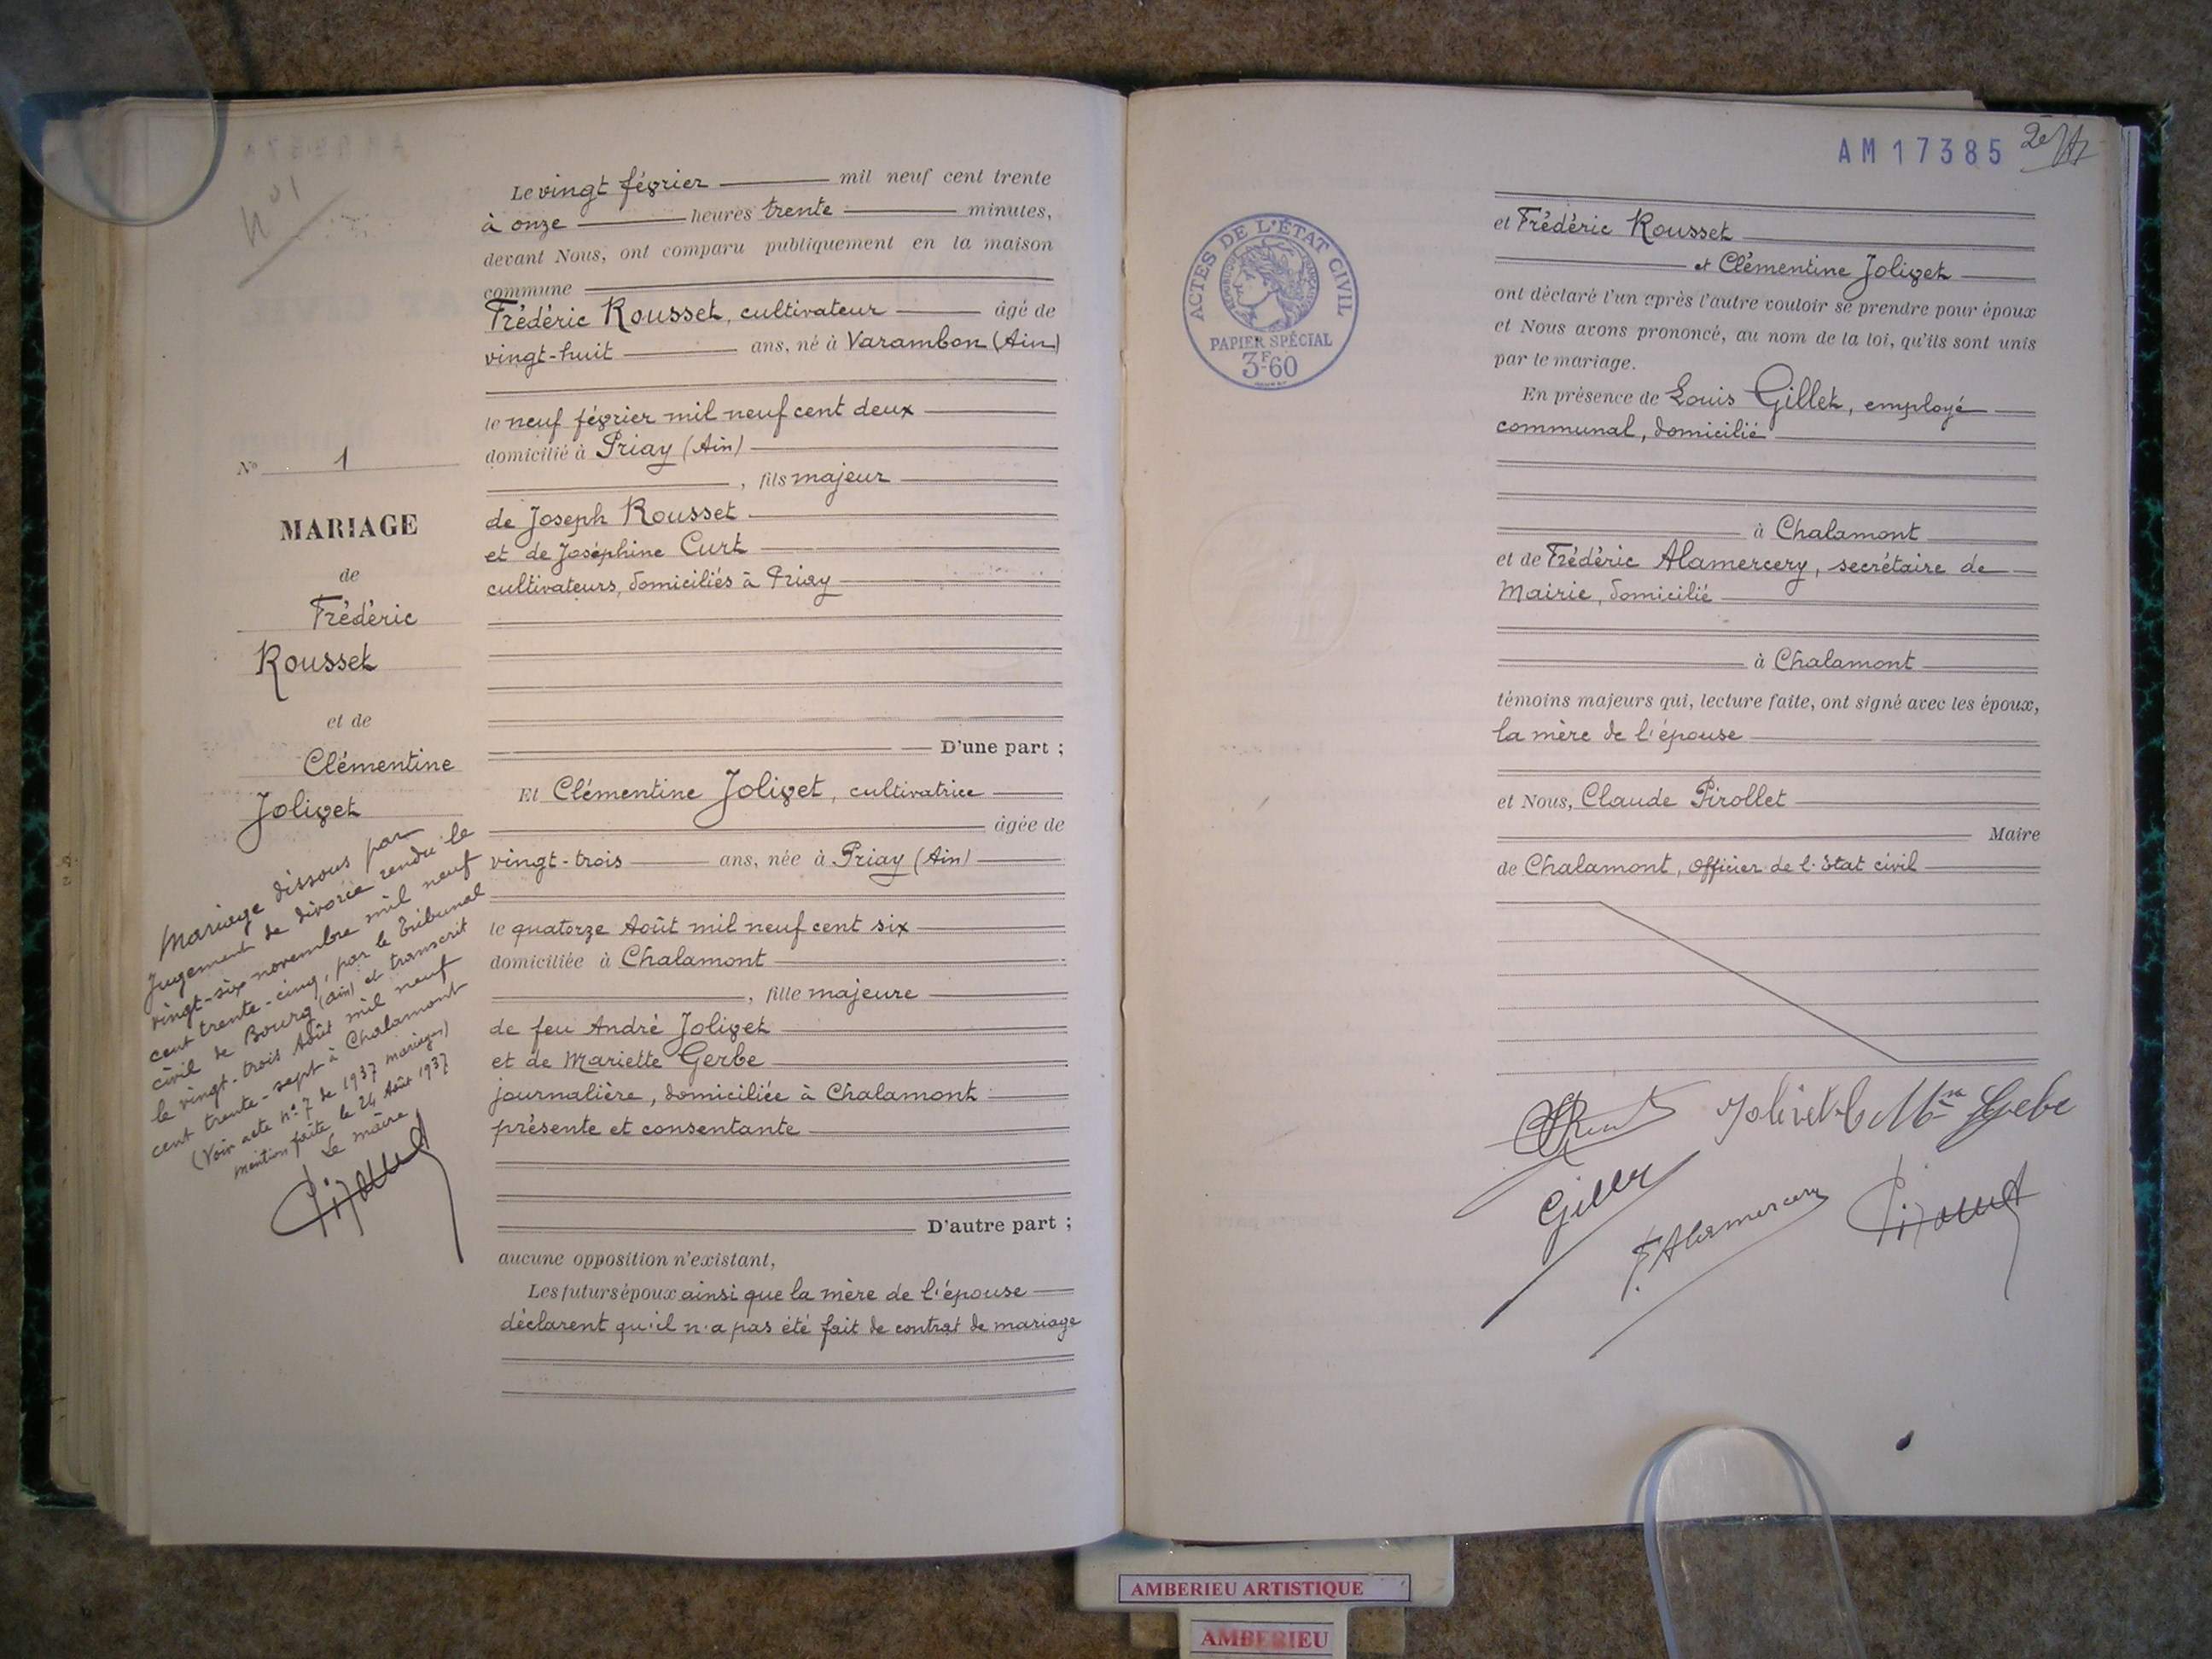 N° 1
N° 1
MARIAGE
de
Frédéric
Rousset
et de
Clémentine
Jolivet
Mariage dissous par
Jugement de divorce rendu le
vingt-six novembre mil neuf
cent trente-cinq, par le Tribunal
civil de Bourg (Ain) et transcrit
le vingt-trois Août mil neuf
cent trente-sept à Chalamont
(Voir acte n° 7 de 1937 mariages)
mention faite le 24 Août 1937
Le maire
Le vingt février mil neuf cent trente
à onze heures trente minutes,
devant Nous, ont comparu publiquement en la maison
commune
Frédéric Rousset, cultivateur âgé de
vingt-huit ans, né à Varambon (Ain)
le neuf février mil neuf cent deux
domicilié à Priay (Ain)
, fils majeur
de Joseph Rousset
et de Joséphine Curt
cultivateurs, domiciliés à Priay
D'une part ;
Et Clémentine Jolivet, cultivatrice
âgée de
vingt-trois ans, née à Priay (Ain)
le quatorze Août mil neuf cent six
domiciliée à Chalamont
, fille majeure
de feu André Jolivet
et de Mariette Gerbe
journalière, domiciliée à Chalamont
présente et consentante
D'autre part ;
aucune opposition n'existant,
Les futurs époux ainsi que la mère de l'épouse
déclarent qu'il n'a pas été fait de contrat de mariage
AM 17385
ACTES DE L'ÉTAT CIVIL
RÉPUBLIQUE FRANÇAISE
PAPIER SPÉCIAL
3F60
et Frédéric Rousset
et Clémentine Jolivet
ont déclaré l'un après l'autre vouloir se prendre pour époux
et Nous avons prononcé, au nom de la loi, qu'ils sont unis
par le mariage.
En présence de Louis Gillet, employé
communal, domicilié
à Chalamont
et de Frédéric Alamercery, secrétaire de
Mairie, domicilié
à Chalamont
témoins majeurs qui, lecture faite, ont signé avec les époux,
la mère de l'épouse
et Nous, Claude Pirollet
Maire
de Chalamont, Officier de l'Etat civil
Jolivet C Mme Gerbe
Gillet
F. Alamercery
Pirollet
AMBERIEU ARTISTIQUE
AMBERIEU